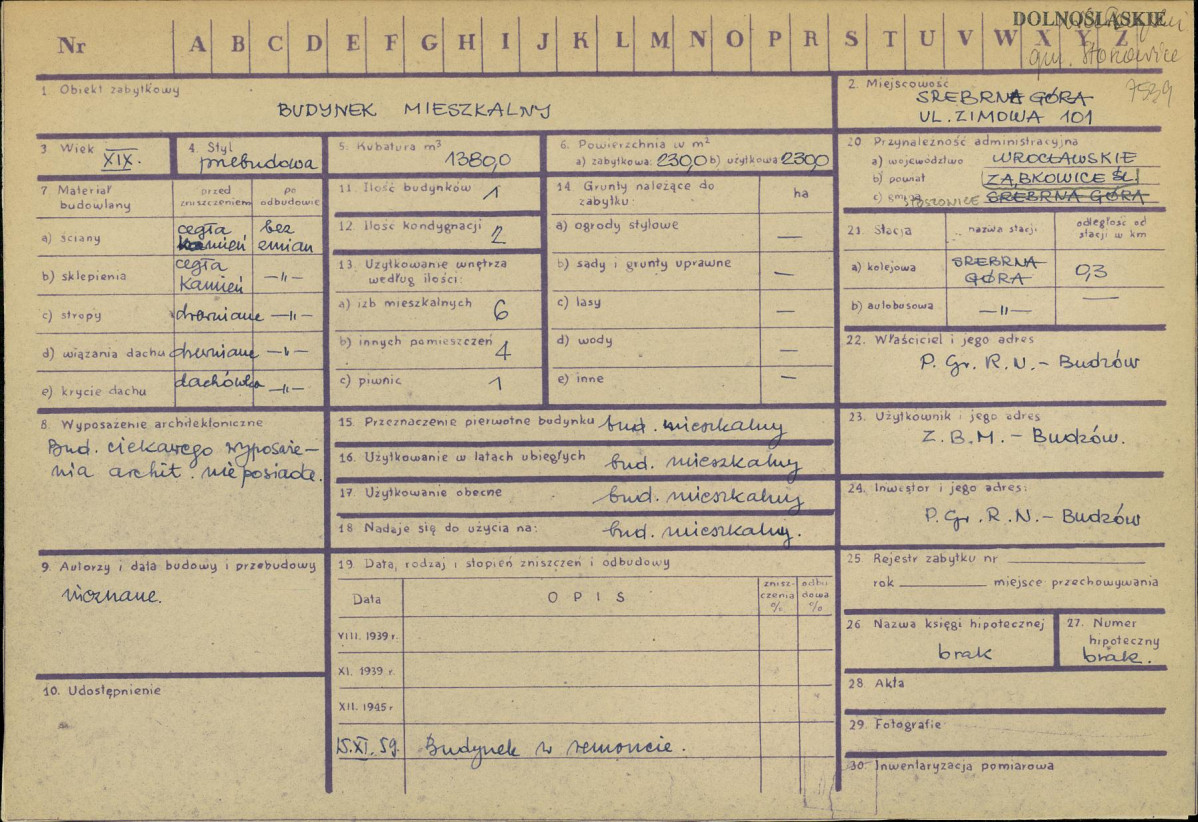 DOLNOŚLĄSKIE
Nr A B C D E F G H I J K L M N O P R S T U V W X Y Z
7539
1. Obiekt zabytkowy
BUDYNEK MIESZKALNY
2. Miejscowość
SREBRNA GÓRA
UL. ZIMOWA 101
3. Wiek
XIX.
4. Styl
przebudowa
5. Kubatura m³
1380,0
6. Powierzchnia w m²
a) zabytkowa: 230,0 b) użytkowa 230,0
7. Materiał budowlany
przed zniszczeniem
po odbudowie
a) ściany
cegła
kamień
bez
zmian
b) sklepienia
cegła
kamień
—"—
c) stropy drewniane —"—
d) wiązania dachu drewniane —"—
e) krycie dachu dachówka —"—
8. Wyposażenie architektoniczne
Bud. ciekawego wyposaże-
nia archit. nie posiada.
9. Autorzy i data budowy i przebudowy
nieznane.
10. Udostępnienie
11. Ilość budynków 1
12. Ilość kondygnacji 2
13. Użytkowanie wnętrza
według ilości:
a) izb mieszkalnych 6
b) innych pomieszczeń 4
c) piwnic 1
14. Grunty należące do
zabytku:
ha
a) ogrody stylowe —
b) sady i grunty uprawne —
c) lasy —
d) wody —
e) inne —
15. Przeznaczenie pierwotne budynku bud. mieszkalny
16. Użytkowanie w latach ubiegłych bud. mieszkalny
17. Użytkowanie obecne bud. mieszkalny
18. Nadaje się do użycia na: bud. mieszkalny.
19. Data, rodzaj i stopień zniszczeń i odbudowy
Data
OPIS
znisz-
czenia
%
odbu
dowa
%
VIII. 1939 r.
XI. 1939 r.
XII. 1945 r
15.XI.59. Budynek w remoncie.
20. Przynależność administracyjna
a) województwo WROCŁAWSKIE
b) powiat ZĄBKOWICE ŚL
c) gmina STOSZOWICE SREBRNA GÓRA
21. Stacja
nazwa stacji
odległość od
stacji w km
a) kolejowa
SREBRNA
GÓRA
0,3
b) autobusowa —"— —
22. Właściciel i jego adres
P. Gr. R. N. – Budzów
23. Użytkownik i jego adres
Z. B. M. – Budzów.
24. Inwestor i jego adres:
P. Gr. R. N. – Budzów
25. Rejestr zabytku nr
rok miejsce przechowywania
26. Nazwa księgi hipotecznej
brak
27. Numer
hipoteczny
brak.
28. Akta
29. Fotografie
30. Inwentaryzacja pomiarowa